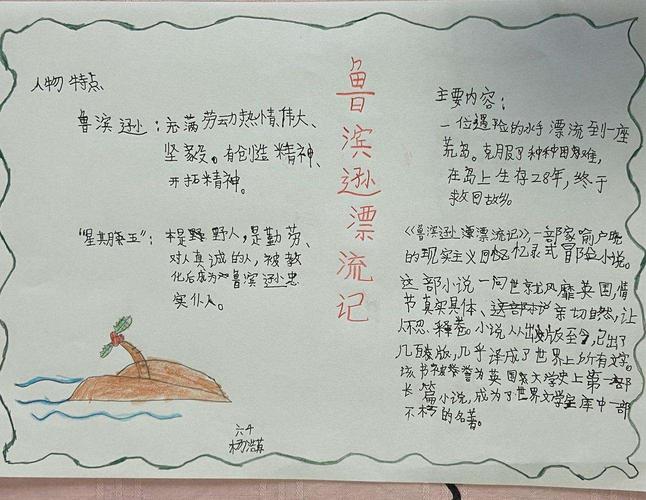 人物特点
鲁滨逊：充满劳动热情、伟大、
坚毅。有创造精神、
开拓精神。
"星期五"：本是野人，是勤劳、
对人真诚的人，被教
化后成为鲁滨逊忠
实仆人。
鲁滨逊漂流记
主要内容：
一位遇险的水手漂流到一座
荒岛。克服了种种困难，
在岛上生存28年，终于
救回故乡。
《鲁滨逊漂流记》，一部家喻户晓
的现实主义回忆录式冒险小说。
这部小说一问世就风靡英国，情
节真实具体、亲切自然，让
人不忍释卷。小说从出版至今，已出了
几百版，几乎译成了世界上所有文字。
该书被誉为英国文学史上第一部
长篇小说，成为了世界文学宝库中一部
不朽的名著。
六4